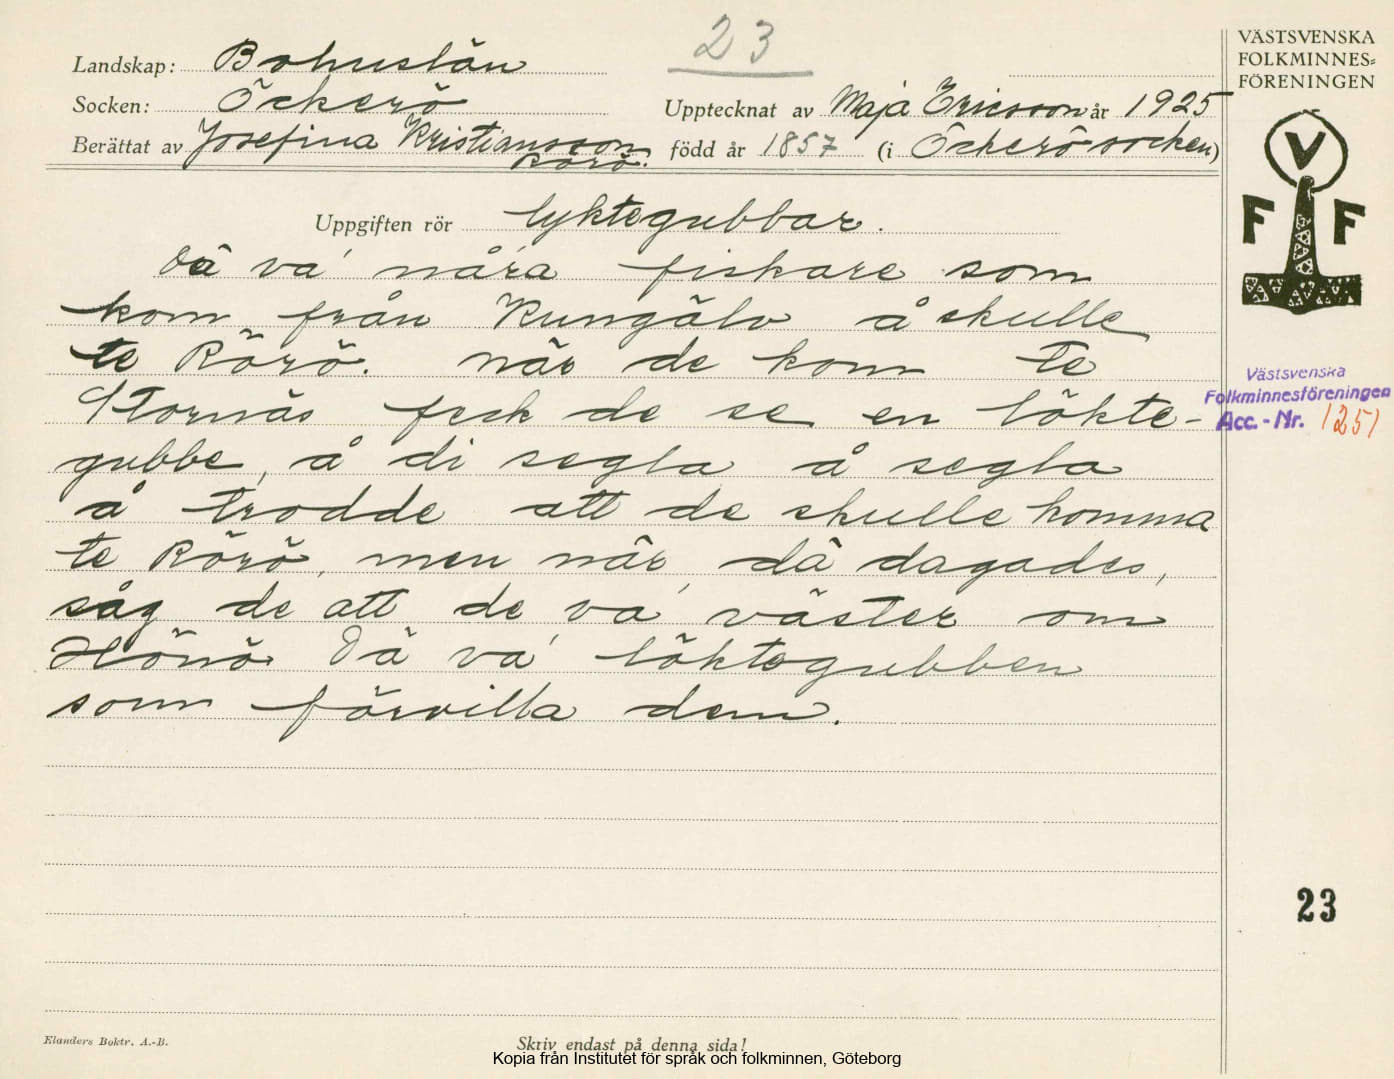 23
Landskap: Bohuslän
Socken: Öckerö
Upptecknat av Maja Ericsson år 1925
Berättat av Josefina Kristiansson
Rörö.
född år 1857 (i Öckerö socken)
Uppgiften rör lyktegubbar.
Dä va' nåra fiskare som
kom från Kungälv å skulle
te Rörö. när de kom te
Stornäs feck de se en lökte-
gubbe, å di segla å segla
å trodde att de skulle komma
te Rörö, men när dä dagades,
såg de att de va' väster om
Hönö Dä va' löktegubben
som förvilla dem.
VÄSTSVENSKA
FOLKMINNES=
FÖRENINGEN
V
F F
Västsvenska
Folkminnesföreningen
Acc. - Nr. 1251
23
Elanders Boktr. A.-B.
Skriv endast på denna sida!
Kopia från Institutet för språk och folkminnen, Göteborg